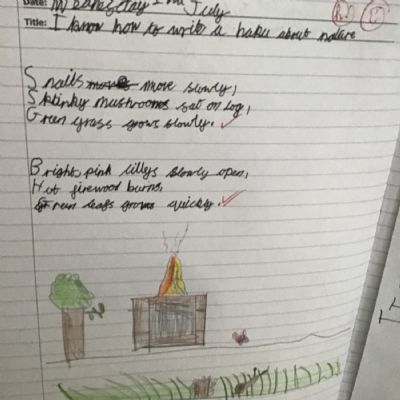 Date: Wednesday July
Title: I know how to write a haku about nature
Snails move slowly,
Stinky mushrooms sat on log,
Green grass grows slowly.
Bright pink lillys slowly open,
Hot firewood burns,
Green leafs grows quickly.